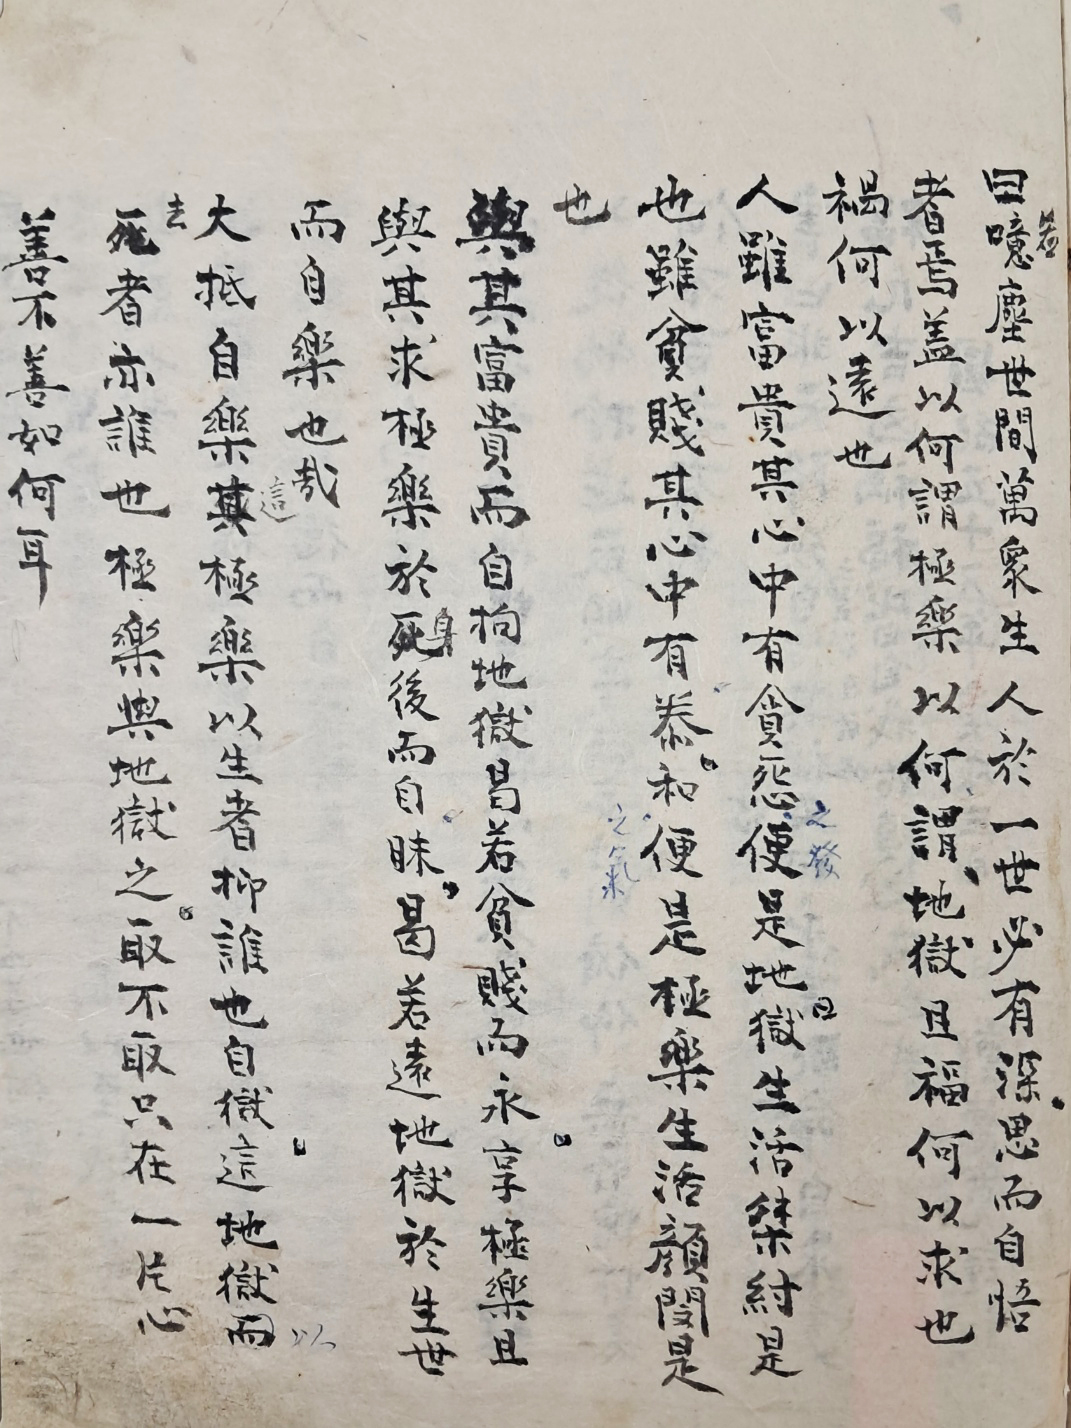 曰噫塵世間萬衆生人於一世必有深思而自悟
若
者焉盖以何謂極樂以何謂地獄且福何以求也
禍何以遠也
人雖富貴其心中有貪惡便是地獄生活桀紂是
之發
也雖貧賤其心中有泰和便是極樂生活顔閔是
之氣
也
與其富貴而自拘地獄曷若貧賤而永享極樂且
與其求極樂於死後而自昧曷若遠地獄於生世
身
而自樂也哉
大抵自樂其極樂以生者抑誰也自獄這地獄而
這
以
死者亦誰也極樂與地獄之取不取只在一片心
去
善不善如何耳